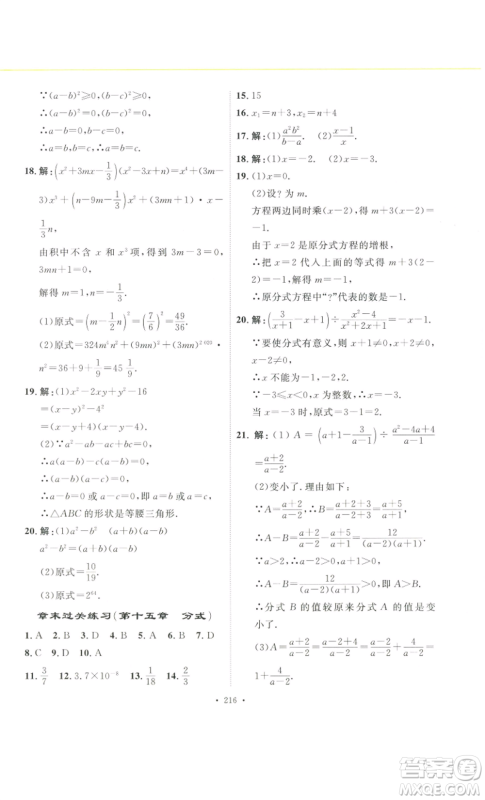 ∵(a－b)²≥0,(b－c)²≥0,
∴(a－b)²=0,(b－c)²=0,
∴a－b=0,b－c=0,
∴a=b,b=c,∴a=b=c.
18. 解:(x²+3mx－1/3)(x²－3x+n)=x⁴+(3m－3)x³+(n－9m－1/3)x²+(3mn+1)x－1/3n,
由积中不含 x 和 x³项,得 3m－3=0,3mn+1=0,
解得 m=1,n=－1/3.
(1)原式=(m－1/2n)²=(7/6)²=49/36.
n²=36+9+1/9=45 1/9.
19. 解:(1)x²－2xy+y²－16
=(x－y)²－4²
=(x－y+4)(x－y－4).
(2)∵a²－ab－ac+bc=0,
∴a(a－b)－c(a－b)=0,
∴(a－b)(a－c)=0,
∴a－b=0 或 a－c=0,
∴a=b 或 a=c,
∴△ABC 的形状是等腰三角形.
20. 解:(1)a²－b² (a－b)(a+b)
a²－b²=(a－b)(a+b)
(2)原式=10/19.
(3)原式=2⁶⁴.
章末过关练习(第十五章 分式)
1. A 2. B 3. C 4. D 5. A 6. A 7. D
8. C 9. D 10. A
11. 3/7 12. 3.7×10⁻⁶ 13. 1/18 14. 2/3
15. 15
16. x₁=n+3,x₂=n+4
17. 解:(1)a²b²/(b－a). (2)(x－1)/x.
18. 解:(1)x=－2. (2)x=－3.
19. (1)x=0.
(2)设? 为 m.
方程两边同时乘(x－2),得 m+3(x－2)=－1.
由于 x=2 是原分式方程的增根,
∴把 x=2 代人上面的等式得 m+3(2－2)=－1.解得 m=－1.
∴原分式方程中“?”代表的数是－1.
20. 解:(3/(x+1)－x+1)÷(x²－4)/(x²+2x+1)=－x－1.
∵要使分式有意义,则 x≠－1,x≠±2,
∴x 不能为－1,－2,2.
∵－3≤x≤0,x 为整数,∴x=－3,0.
当 x=－3 时,原式=2.
21. 解:(1)A=(a+1－3/(a－1))÷(a²－4a+4)/(a－1)
=(a+2)/(a－2).
(2)变小了,理由如下:
∵A=(a+2)/(a－2),∴B=(a+2+3)/(a－2+3)=(a+5)/(a+1),
∴A－B=(a+2)/(a－2)－(a+5)/(a+1)=12/((a－2)(a+1)).
∵a>2,∴a－2>0,a+1>0,
∴A－B=12/((a－2)(a+1))>0.
∴分式 B 的值较原来分式 A 的值是变小了.
(3)A=(a+2)/(a－2)=(a－2+4)/(a－2)=(a－2)/(a－2)+4/(a－2)=1+4/(a－2).
· 216 ·
答案圈
MXQE.COM